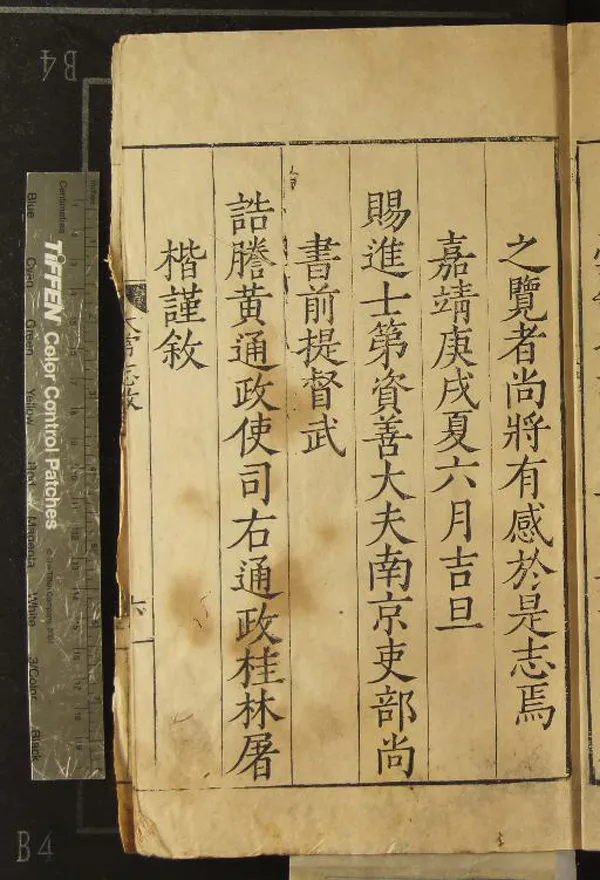 之覽者尚將有感於是志焉
嘉靖庚戌夏六月吉旦
賜進士第資善大夫南京吏部尚
書前提督武
誥謄黃通政使司右通政桂林屠
楷謹敘
六
B4
B4
inches
Centimetres
TIFFEN Color Control Patches
Blue
Cyan
Green
Yellow
Red
Magenta
White
3/Color
Black